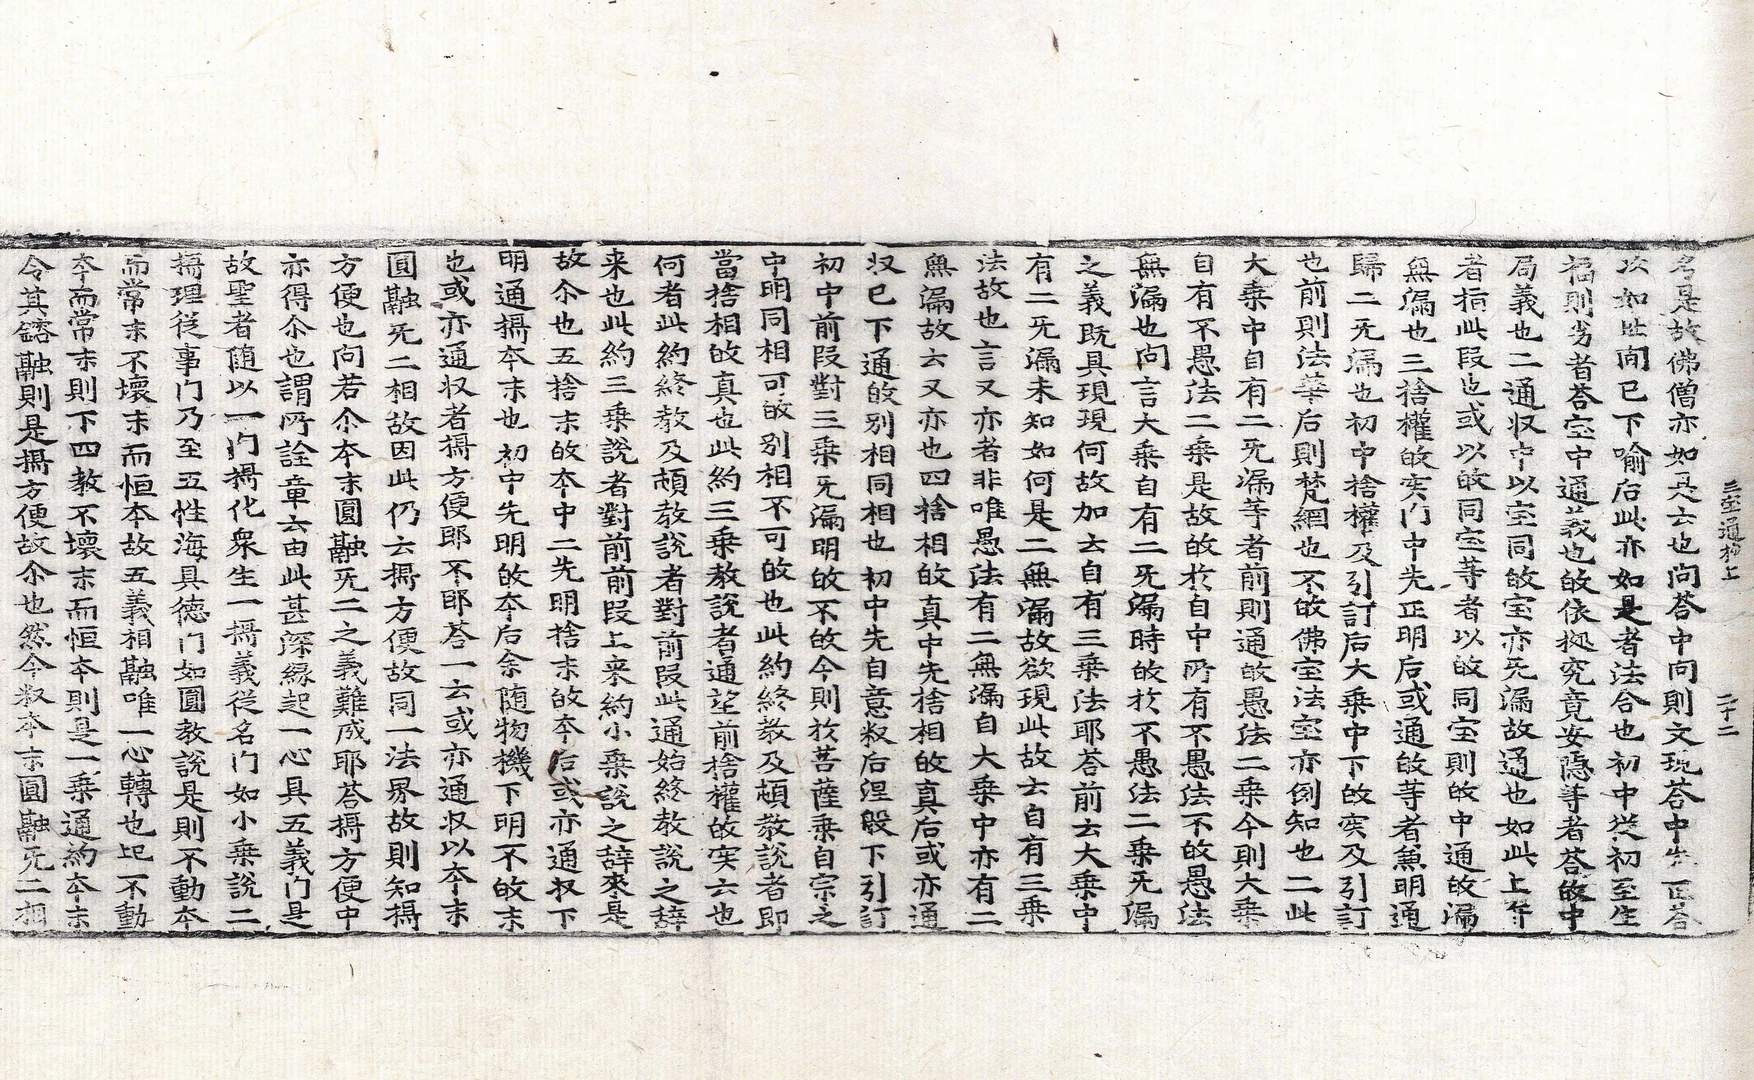 三宝通抄上　二十二
名是故佛僧亦如是去也问荅中向則文現荅中先正荅
次如此问已下喻后此亦如是者法合也初中從初至生
福則劣者荅宝中通义也㪅依拠究竟安隱等者荅㪅中
局義也二通収中以宝同㪅宝亦旡漏故通也如此上等
者指此段也或以㪅同宝等者以㪅同宝則㪅中通㪅漏
無漏也三捨權㪅实门中先正明后或通㪅等者兼明通
歸二旡漏也初中捨權及引訂后大乗中下㪅实及引訂
也前則法華后則梵網也不㪅佛宝法宝亦例知也二此
大乗中自有二旡漏等者前則通㪅愚法二乗今則大乗
自有不愚法二乗是故㪅扵自中所有不愚法不㪅愚法
無漏也问言大乗自有二旡漏時㪅扵不愚法二乗旡漏
之義既具現現何故加去自有三乗法耶荅前去大乗中
有二旡漏未知如何是二無漏故欲現此故去自有三乗
法故也言又亦者非唯愚法有二無漏自大乗中亦有二
無漏故去又亦也四捨相㪅真中先捨相㪅真后或亦通
収已下通㪅别相同相也初中先自意叙后涅般下引訂
初中前段對三乗旡漏明㪅不㪅今則扵菩薩乗自宗之
中明同相可㪅别相不可㪅也此約終教及頓教說者即
當捨相㪅真也此約三乗教說者通望前捨權㪅实六也
何者此約終教及頓教說者對前段此通始終教說之辞
来也此約三乗說者對前前段上来約小乗說之辞來是
故尒也五捨末㪅夲中二先明捨末㪅夲后或亦通収下
明通攝夲末也初中先明㪅夲后余随物機下明不㪅末
也或亦通収者攝方便耶不耶荅一云或亦通収以夲末
圓融旡二相故因此仍云攝方便故同一法界故則知攝
方便也问若尒夲末圓融旡二之義難成耶荅攝方便中
亦得尒也謂所詮章云由此甚深緣起一心具五義门是
故聖者随以一门攝化衆生一攝義從名门如小乗說二
攝理從事门乃至五性海具德门如圓教說是則不動夲
而常末不壞末而恒夲故五義相融唯一心轉也㫖不動
夲而常末則下四教不壞末而恒夲則是一乗通約夲末
令其鎔融則是攝方便故尒也然今叙夲末圓融旡二相